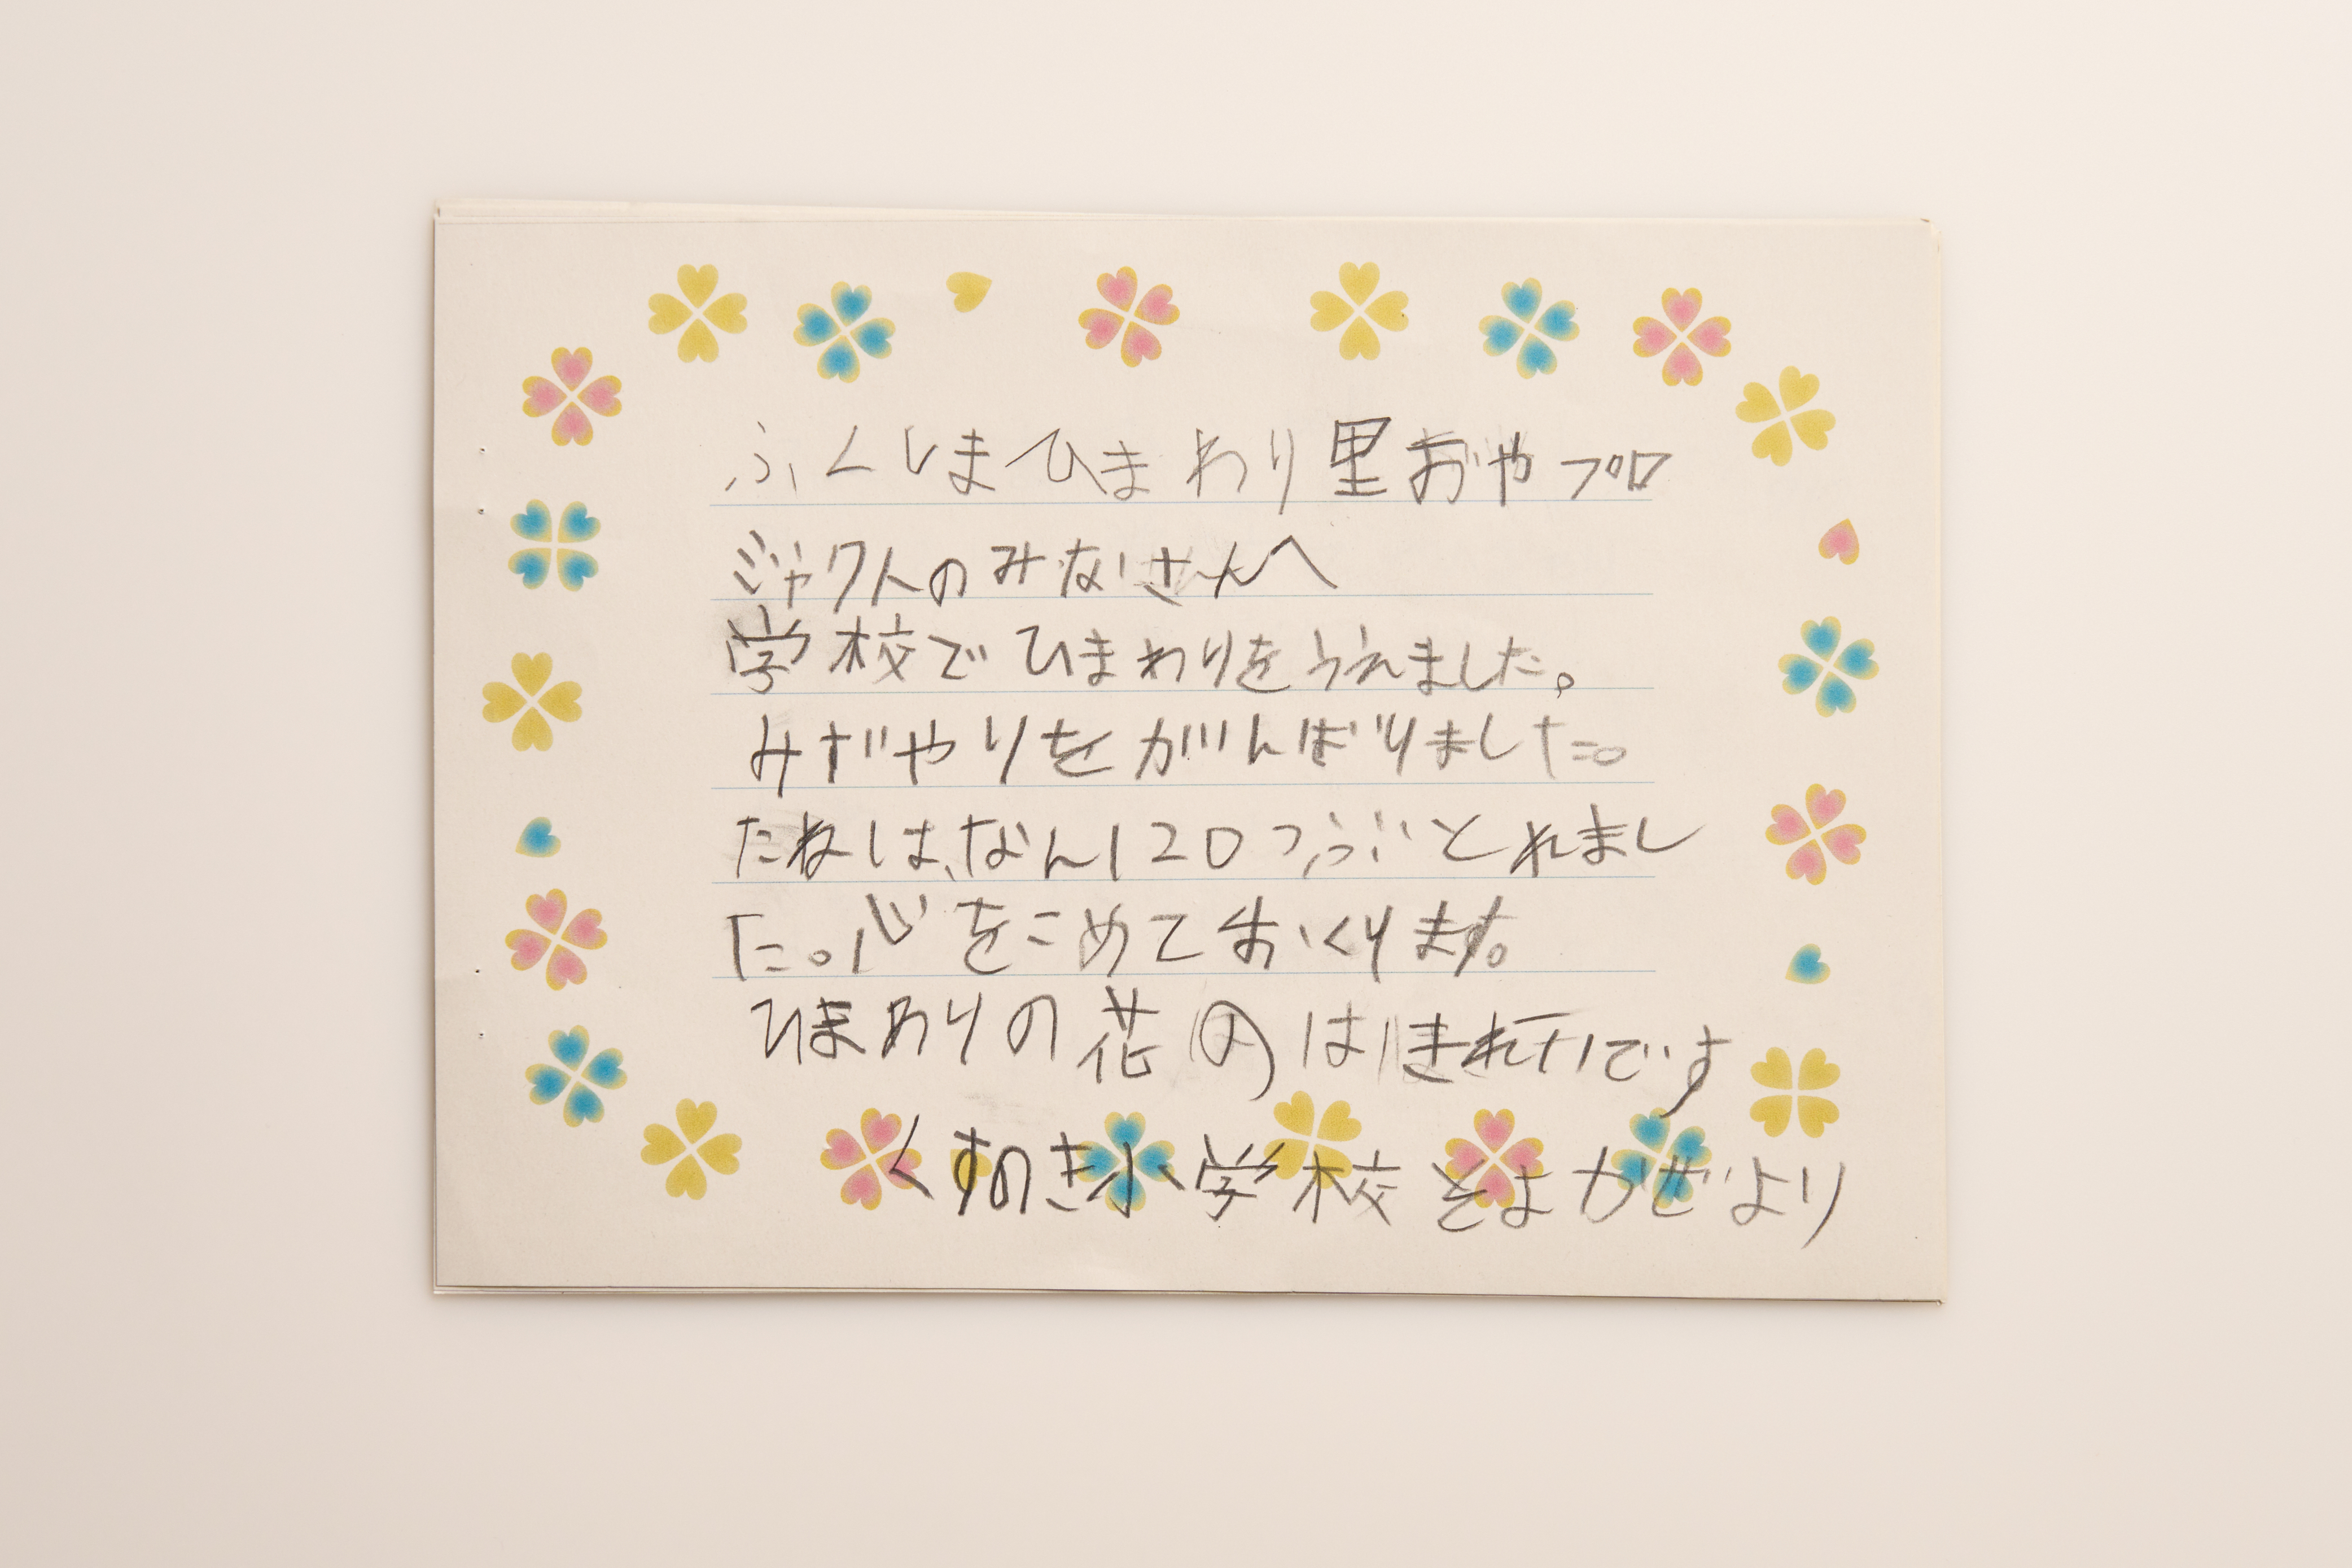 ふくしまひまわり里おやプロ
ジャクトのみなさんへ
学校でひまわりをうえました。
みずやりをがんばりました。
たねは、なん120つぶとれまし
た。心をこめておくります。
ひまわりの花のは きれいです
くすのき小学校そよかぜより